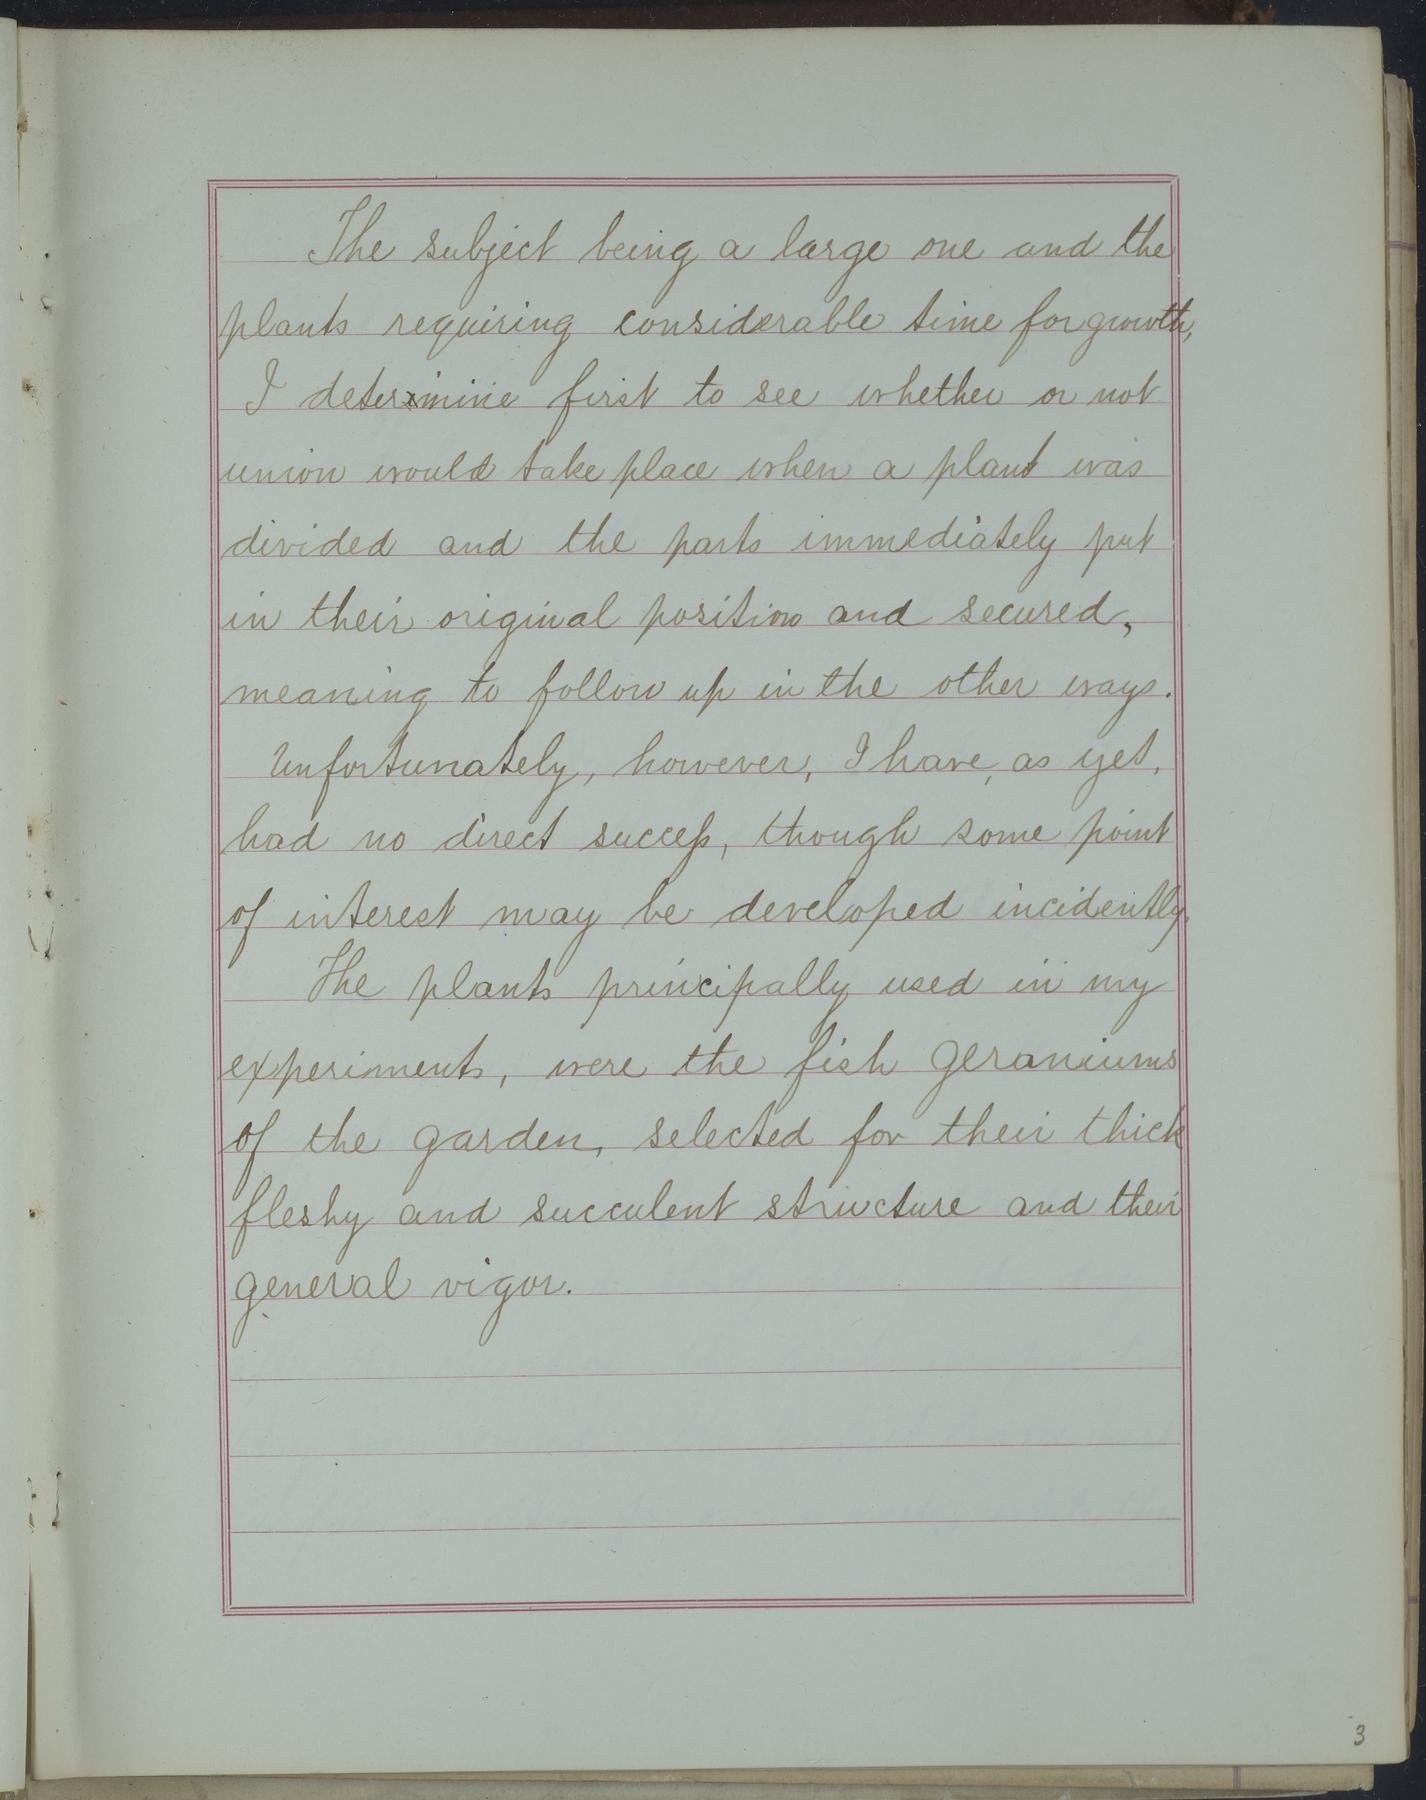 The subject being a large one and the
plants requiring considerable time for growth,
I determine first to see whether or not
union would take place when a plant was
divided and the parts immediately put
in their original position and secured,
meaning to follow up in the other ways.
Unfortunately, however, I have, as yet,
had no direct success, though some point
of interest may be developed incidently.
The plants principally used in my
experiments, were the fish geraniums
of the garden, selected for their thick
fleshy and succulent structure and their
general vigor.
3